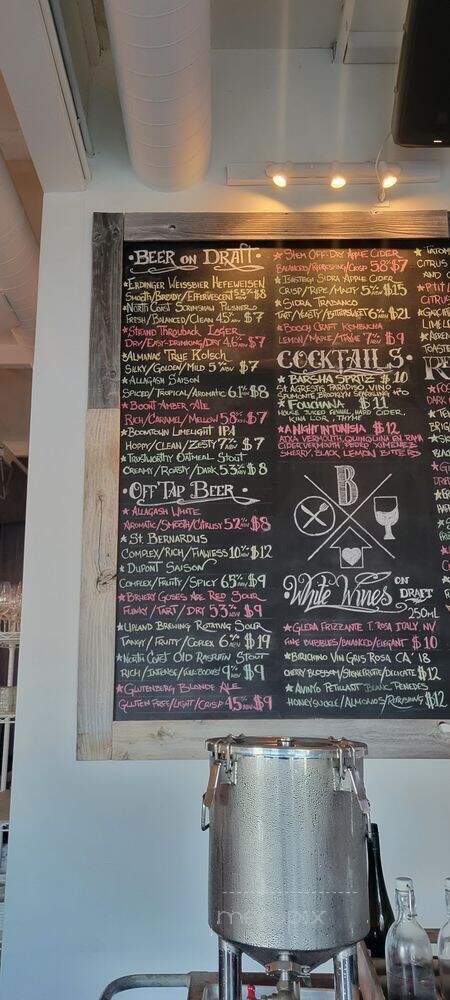 •Beer on Draft•
★Erdinger Weissbier Hefeweisen
Smooth/Bready/Effervescent 5.3% ABV $8
★North Coast Scrimshaw Pilsner
Fresh/Balanced/Clean 4.5% ABV $7
★Strand Throwback Lager
Dry/Easy-Drinking/Dry 4.6% ABV $7
★Almanac True Kolsch
Silky/Golden/Mild 5% ABV $7
★Allagash Saison
Spiced/Tropical/Aromatic 6.1% ABV $8
★Boont Amber Ale
Rich/Caramel/Mellow 5.8% ABV $7
★Boomtown Limelight IPA
Hoppy/Clean/Zesty 7% ABV $7
★Trustworthy Oatmeal Stout
Creamy/Roasty/Dark 5.3% ABV $8
•Off Tap Beer•
★Allagash White
Aromatic/Smooth/Citrusy 5.2% ABV $8
★St. Bernardus
Complex/Rich/Flawless 10% ABV $12
★Dupont Saison
Complex/Fruity/Spicy 6.5% ABV $9
★Brewery Goses Are Red Sour
Funky/Tart/Dry 5.3% ABV $9
★Upland Brewing Rotating Sour
Tangy/Fruity/Coplex 6% ABV $19
★North Coast Old Rasputin Stout
Rich/Intense/Full Bodied 9% ABV $9
★Glutenberg Blonde Ale
Gluten Free/Light/Crisp 4.5% ABV $9
★Stem Off-Dry Apple Cider
Balanced/Refreshing/Crisp 5.8% $7
★Isastegi Sidra Apple Cider
Crisp/Ripe/Malty 5% ABV $15
★Sidra Trabanco
Tart/Yeasty/Bittersweet 6% ABV $21
★Booch Craft Kombucha
Lemon/Maple/Thyme 7% ABV $9
Cocktails•
★Barsha Spritz $10
St. Agrestis Paradiso, Vino
Spumonte, Brooklyn Sparkling H2O
★Fouchana $11
House Juiced Fennel, Hard Cider,
Kina L'or, Thyme
★A Night in Tunisia $12
Atxa Vermouth, Quinquina en Rama
Cider Vermouth, Pedro Ximenez
Sherry, Black Lemon Bitters
B
•White Wines on
Draft
250ml
★Glera Frizzante T. Rosa Italy NV
Fine Bubbles/Balanced/Elegant $10
★Birichino Vin Gris Rosa CA '18
Cherry Blossom/Stonefruit/Delicate $12
★Avinyo Petillant Blanc Penedes
Honeysuckle/Almonds/Refreshing $12
Citrus
and
Citrus
Lime
Dark